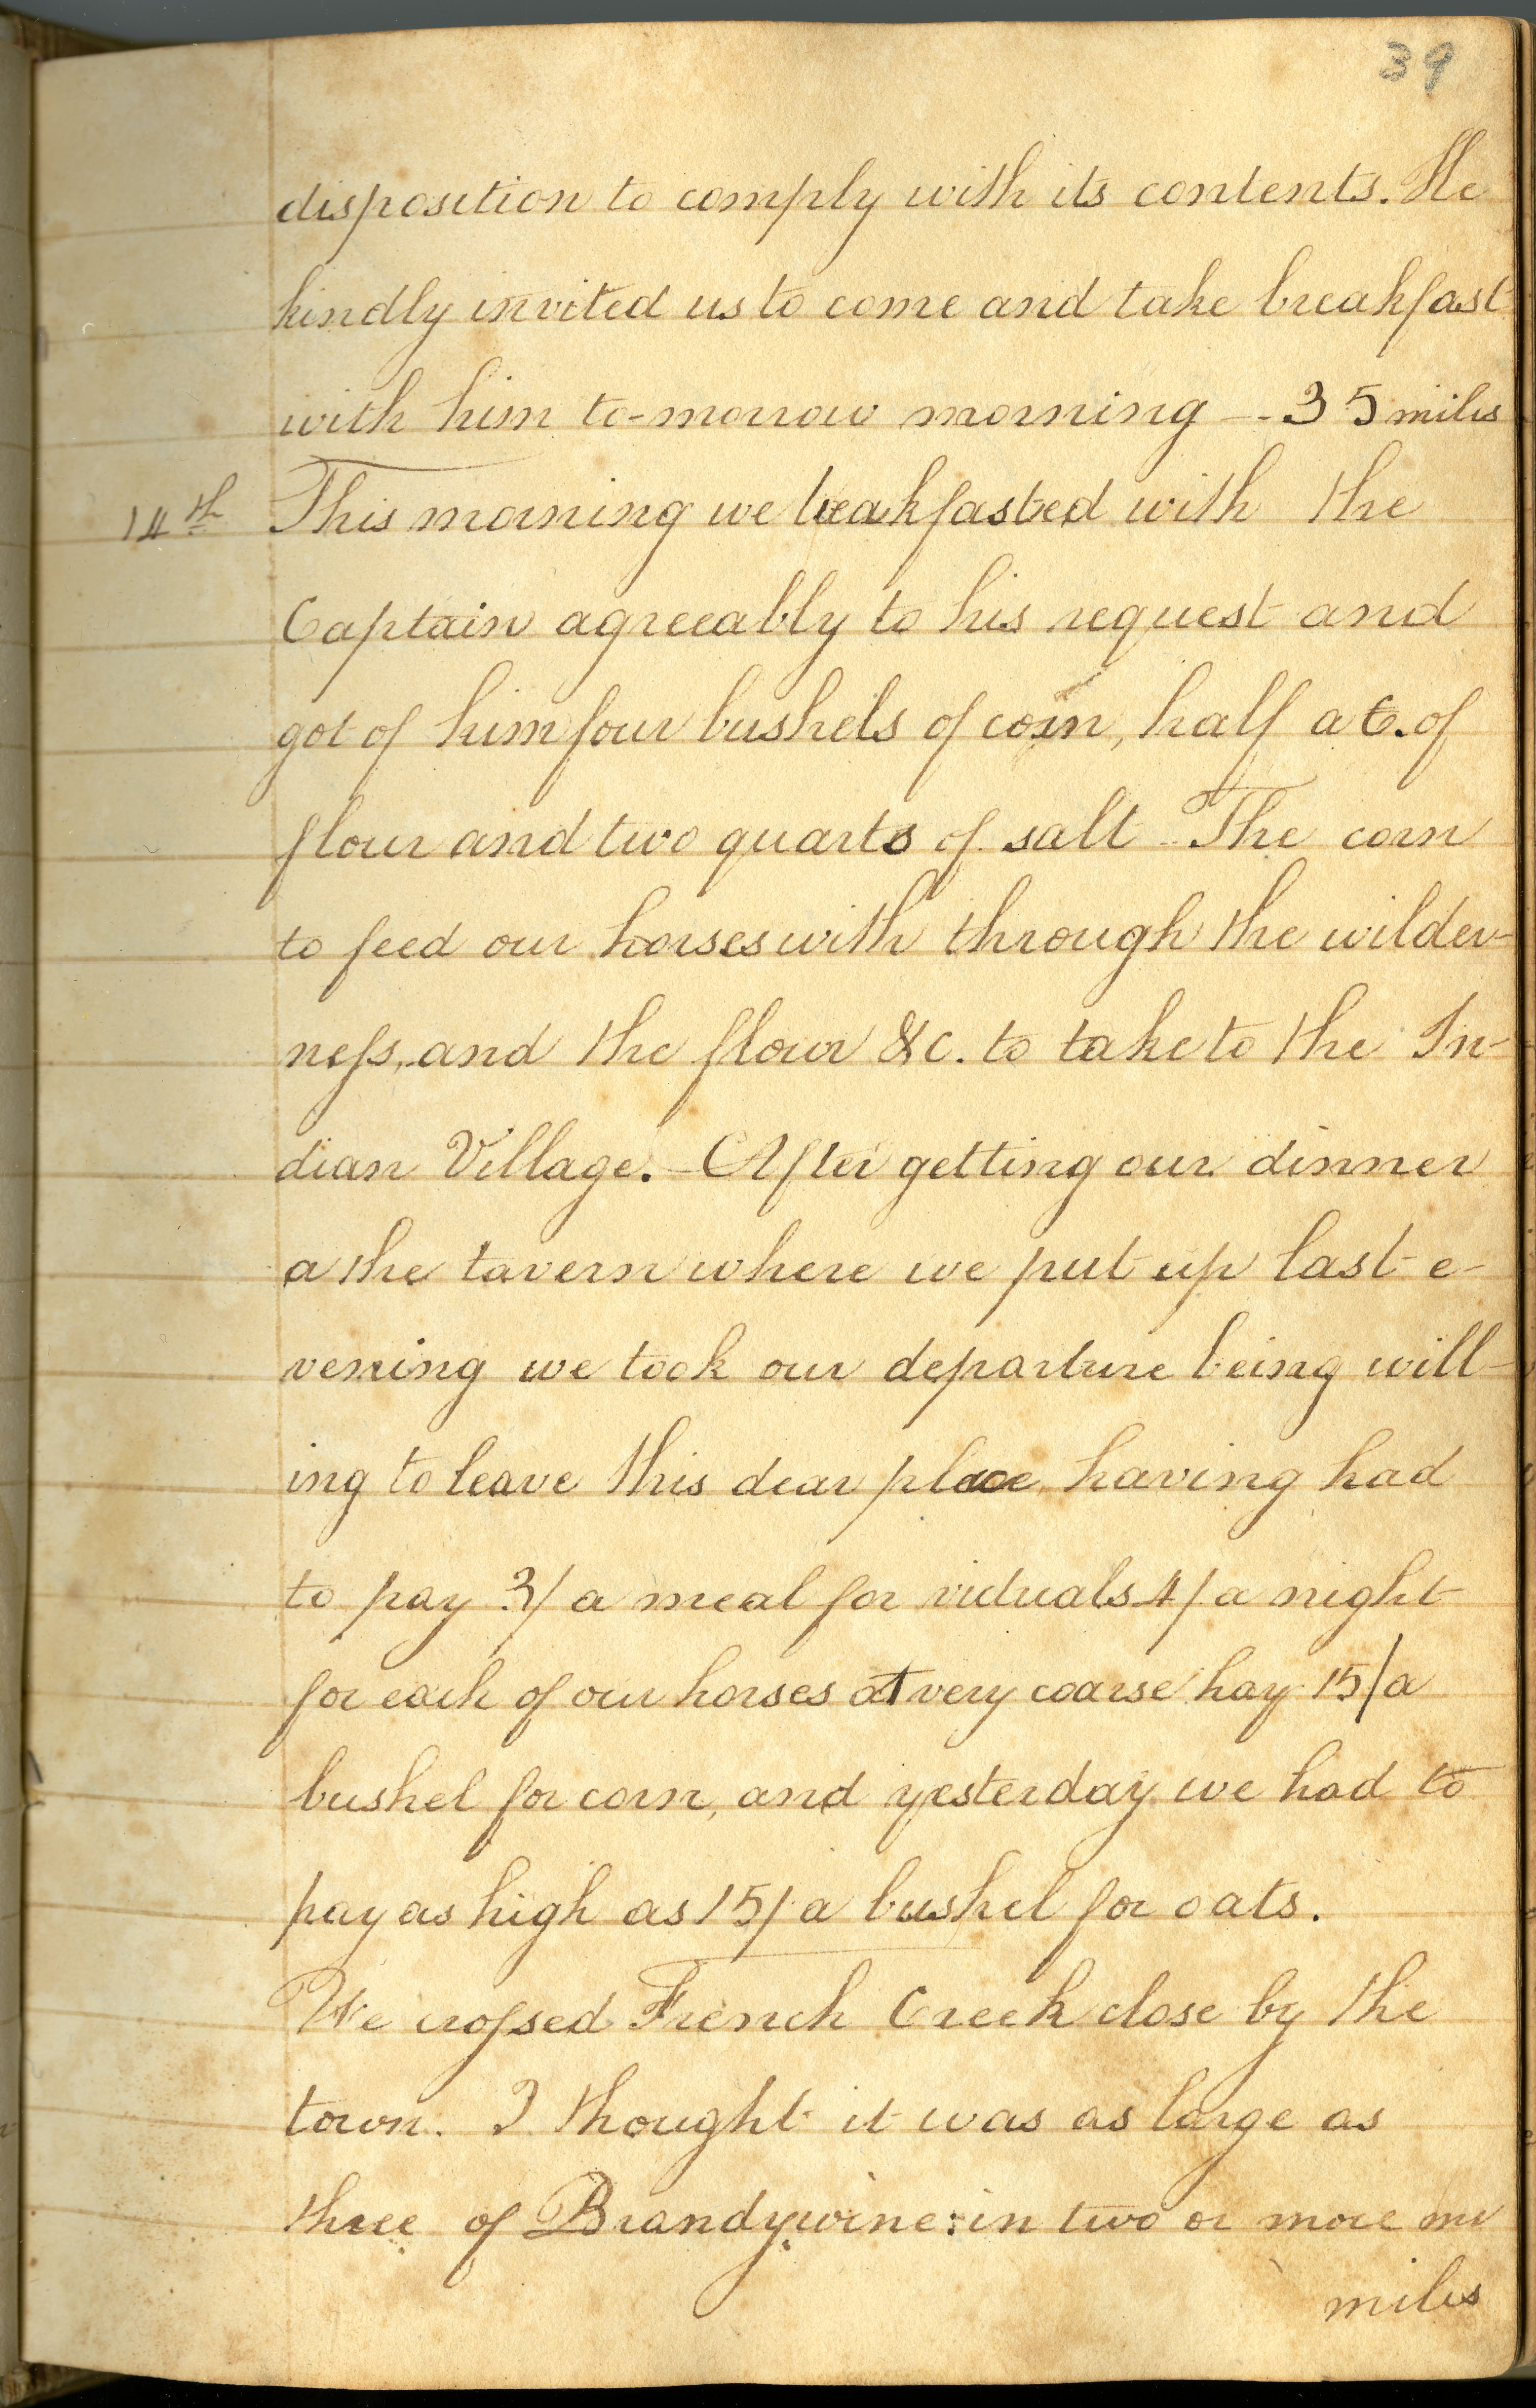 39
disposition to comply with its contents. He
kindly invited us to come and take breakfast
with him to-morrow morning -- 35 miles
14th This morning we breakfasted with the
Captain agreeably to his request and
got of him four bushels of corn, half a C. of
flour and two quarts of salt - The corn
to feed our horses with through the wilder-
neſs, and the flour &c. to take to the In-
dian Village. - After getting our dinner
a the tavern where we put up last e-
vening we took our departure being will-
ing to leave this dear place, having had
to pay 3/ a meal for victuals 4/ a night
for each of our horses at very coarse hay 15/ a
bushel for corn, and yesterday we had to
pay as high as 15/ a bushel for oats.
We croſsed French Creek close by the
town. I thought it was as large as
three of Brandywine: in two or more
miles